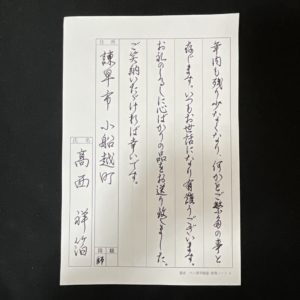 年内も残り少なくなり、何かとご繁多の事と
存じます。いつもお世話になり有難うございます。
お礼のしるしに心ばかりの品をお送り致しました。
ご笑納いただければ幸いです。
住所
諫早市 小船越町
氏名
高西 祥
段級